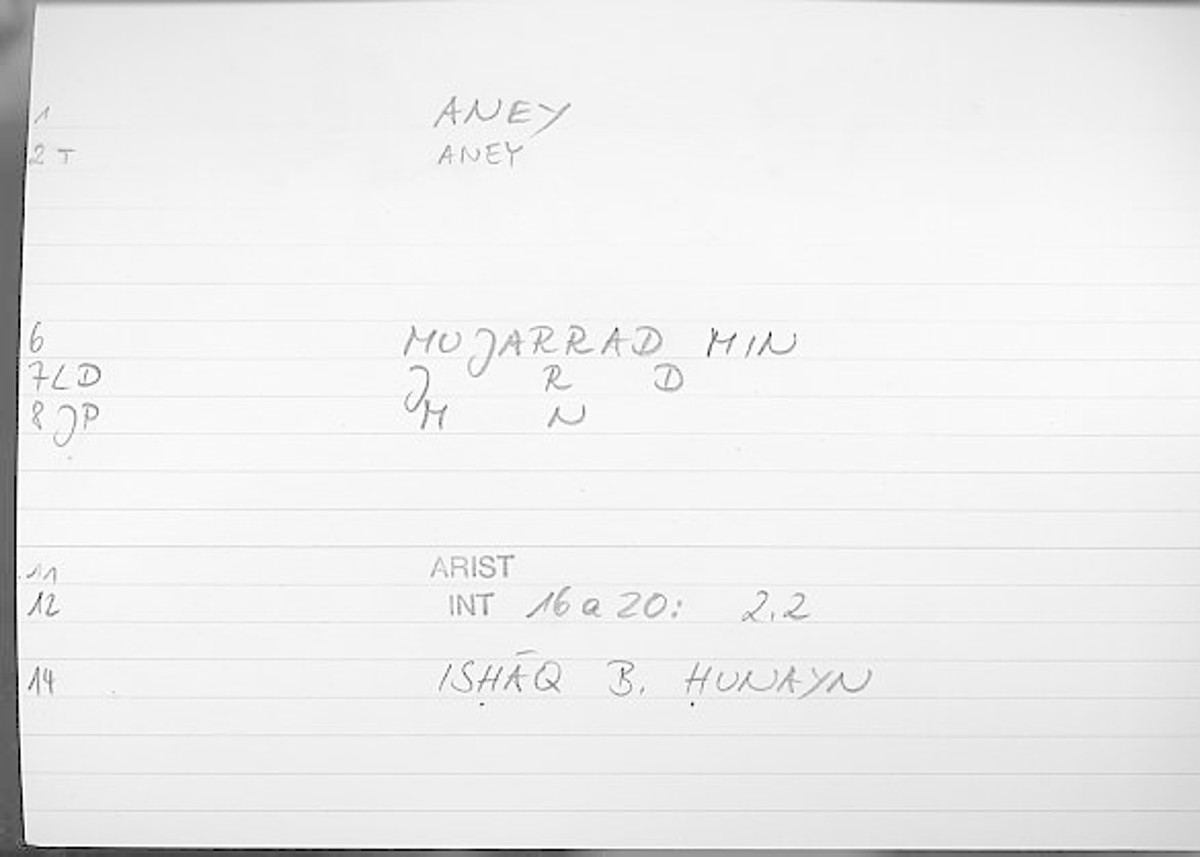 1 ANEY
2 T ANEY
6 MUJARRAD MIN
7 LD J R D
8 JP M N
11 ARIST
12 INT 16 a 20: 2.2
14 ISḤĀQ B. ḤUNAYN